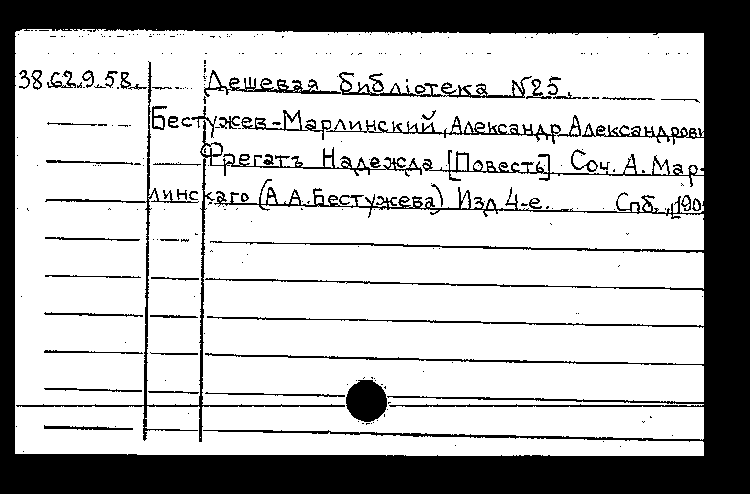 38.62.9.58. Дешевая библіотека N25.
Бестужев-Марлинский, Александр Александрови
Фрегатъ Надежда [Повесть]. Соч. А. Мар-
линскаго (А.А.Бестужева) Изд. 4-е. Спб.,